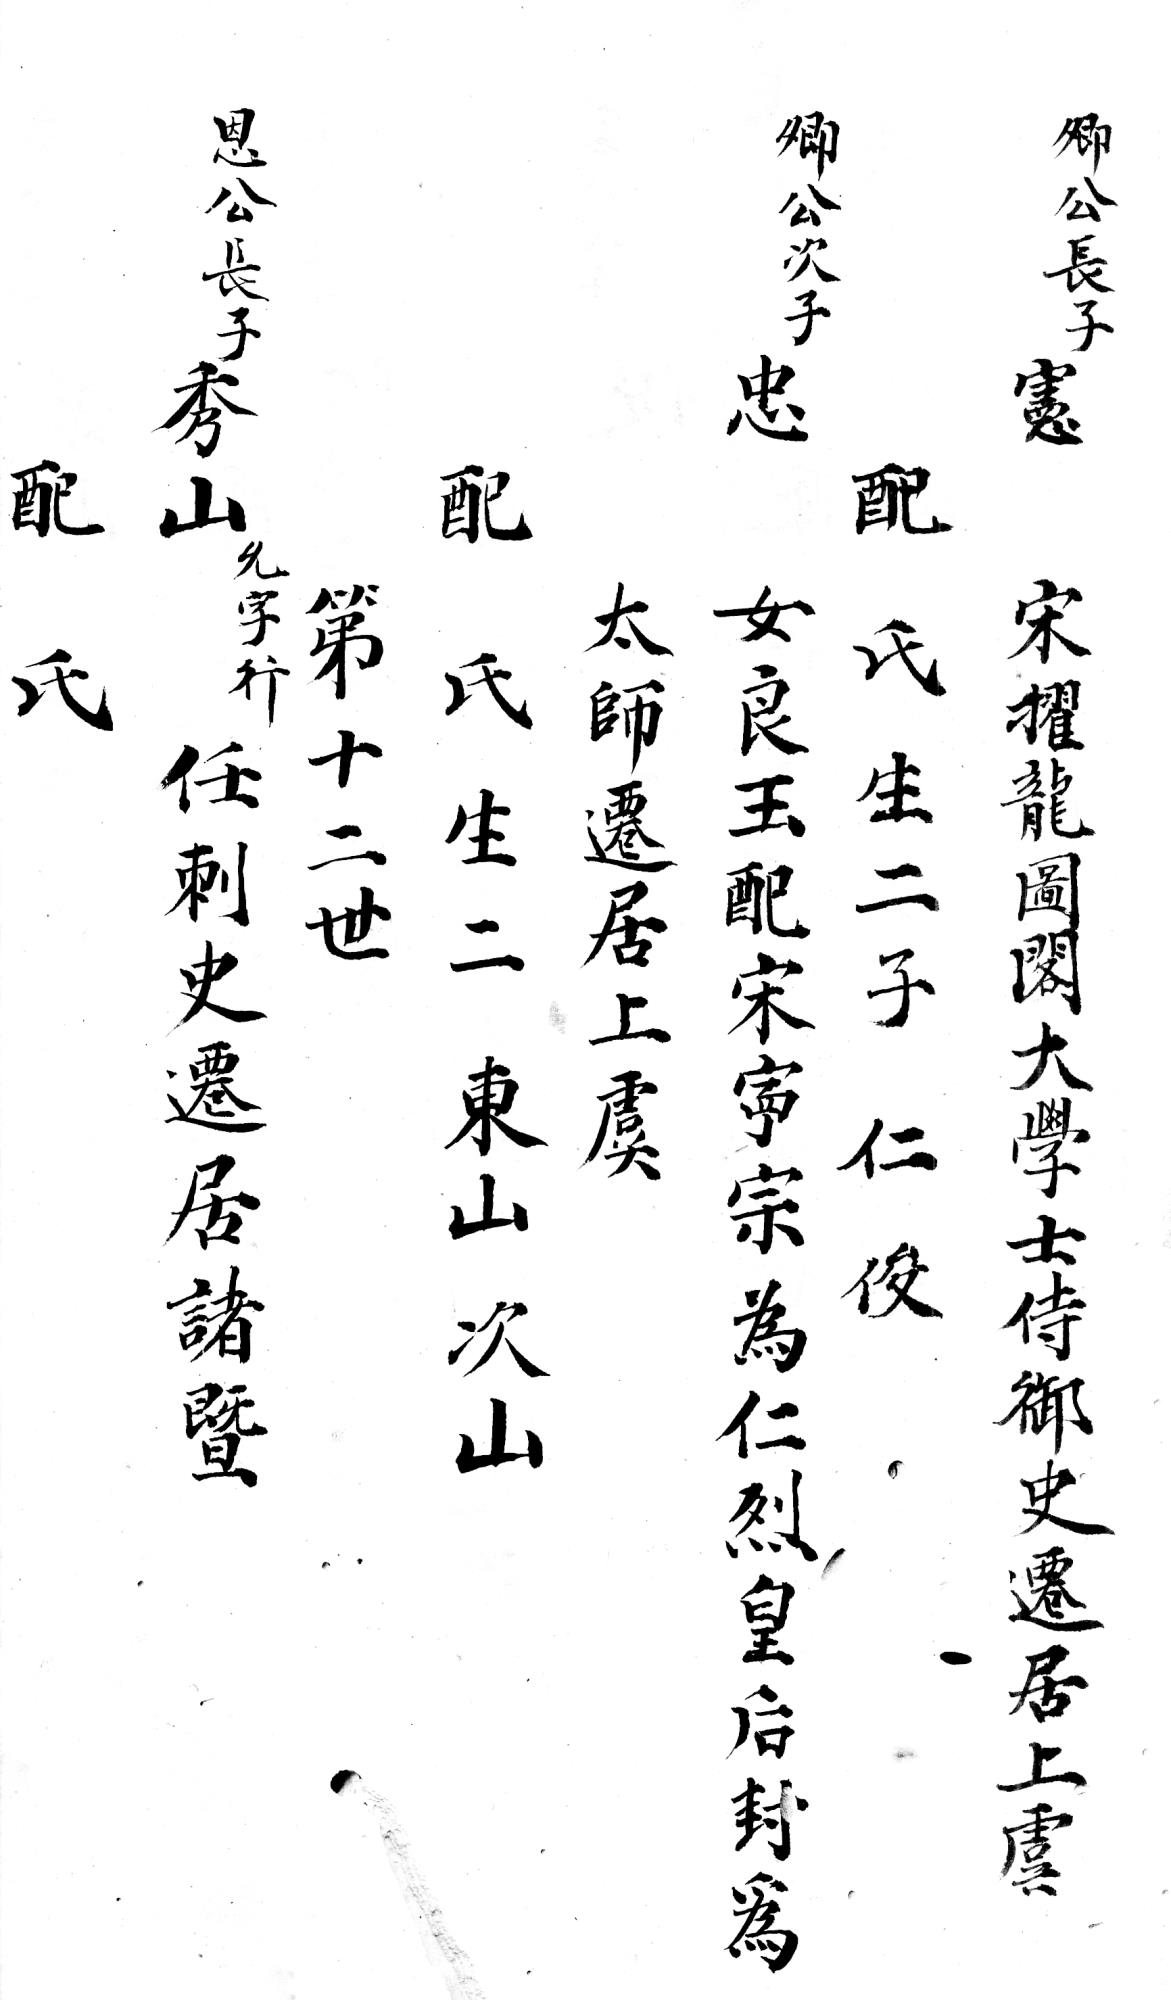 卿公長子憲 宋擢龍圖閣大學士侍御史遷居上虞
配 氏生二子 仁 俊
卿公次子忠 女良玉配宋寧宗為仁烈皇后封為
太師遷居上虞
配 氏生二 東山 次山
第十二世
恩公長子秀山 允字行 任刺史遷居諸暨
配 氏